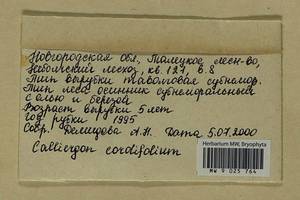 Новгородская обл. Талецкое лесн-во,
лесхоз, кв. 127, в. 8
Тип вырубки таволговая субнемор.
Тип леса осинник субнеморальный
с елью и березой
Возраст вырубки 5 лет
Год рубки 1995
Собр. Демидова А.Н. Дата 5.07.2000
Calliergon cordifolium
Herbarium MW, Bryophyta
MW 9 025 764